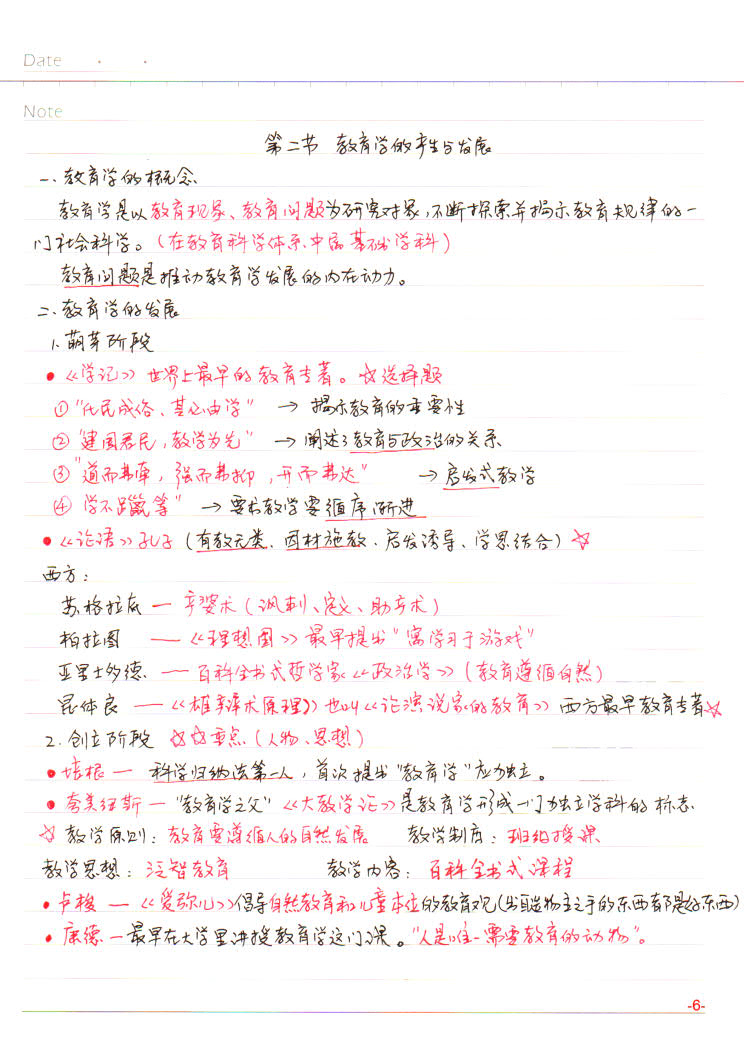 Date
Note
第二节 教育学的产生与发展
一、教育学的概念
教育学是以教育现象、教育问题为研究对象,不断探索并揭示教育规律的一
门社会科学。(在教育科学体系中属基础学科)
教育问题是推动教育学发展的内在动力。
二、教育学的发展
1、萌芽阶段
•《学记》世界上最早的教育专著。☆选择题
①"化民成俗、其必由学" → 揭示教育的重要性
②"建国君民,教学为先" → 阐述了教育与政治的关系
③"道而弗牵,强而弗抑,开而弗达" → 启发式教学
④ 学不躐等" → 要求教学要循序渐进
•《论语》孔子(有教无类、因材施教、启发诱导、学思结合)☆
西方:
苏格拉底 — 产婆术(讽刺、定义、助产术)
柏拉图 — 《理想国》最早提出"寓学习于游戏"
亚里士多德 — 百科全书式哲学家《政治学》(教育遵循自然)
昆体良 — 《雄辩术原理》也叫《论演说家的教育》西方最早教育专著☆
2. 创立阶段 ☆☆重点(人物、思想)
•培根 — 科学归纳法第一人,首次提出"教育学"应独立。
•夸美纽斯 — "教育学之父"《大教学论》是教育学形成一门独立学科的标志
☆ 教学原则:教育要遵循人的自然发展 教学制度:班级授课
教学思想:泛智教育 教学内容:百科全书式课程
•卢梭 — 《爱弥儿》倡导自然教育和儿童本位的教育观(出自造物主之手的东西都是好东西)
•康德 — 最早在大学里讲授教育学这门课。"人是唯一需要教育的动物"。
-6-